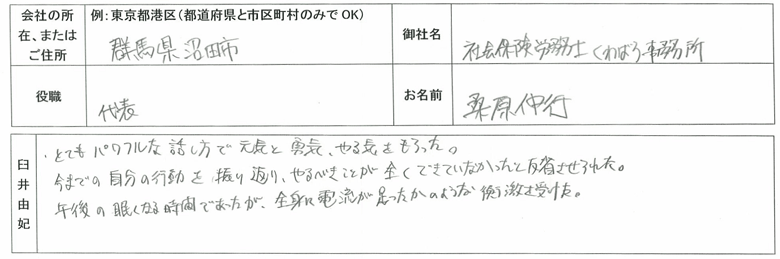 会社の所在、またはご住所
例：東京都港区（都道府県と市区町村のみでOK）
群馬県沼田市
御社名
社会保険労務士くわばら事務所
役職
代表
お名前
桑原伸行
臼井由妃
・とてもパワフルな話し方で元気と勇気、やる気をもらった。
今までの自分の行動を振り返り、やるべきことが全くできていなかったと反省させられた。
午後の眠くなる時間であったが、全身に電流が走ったかのような衝激を受けた。